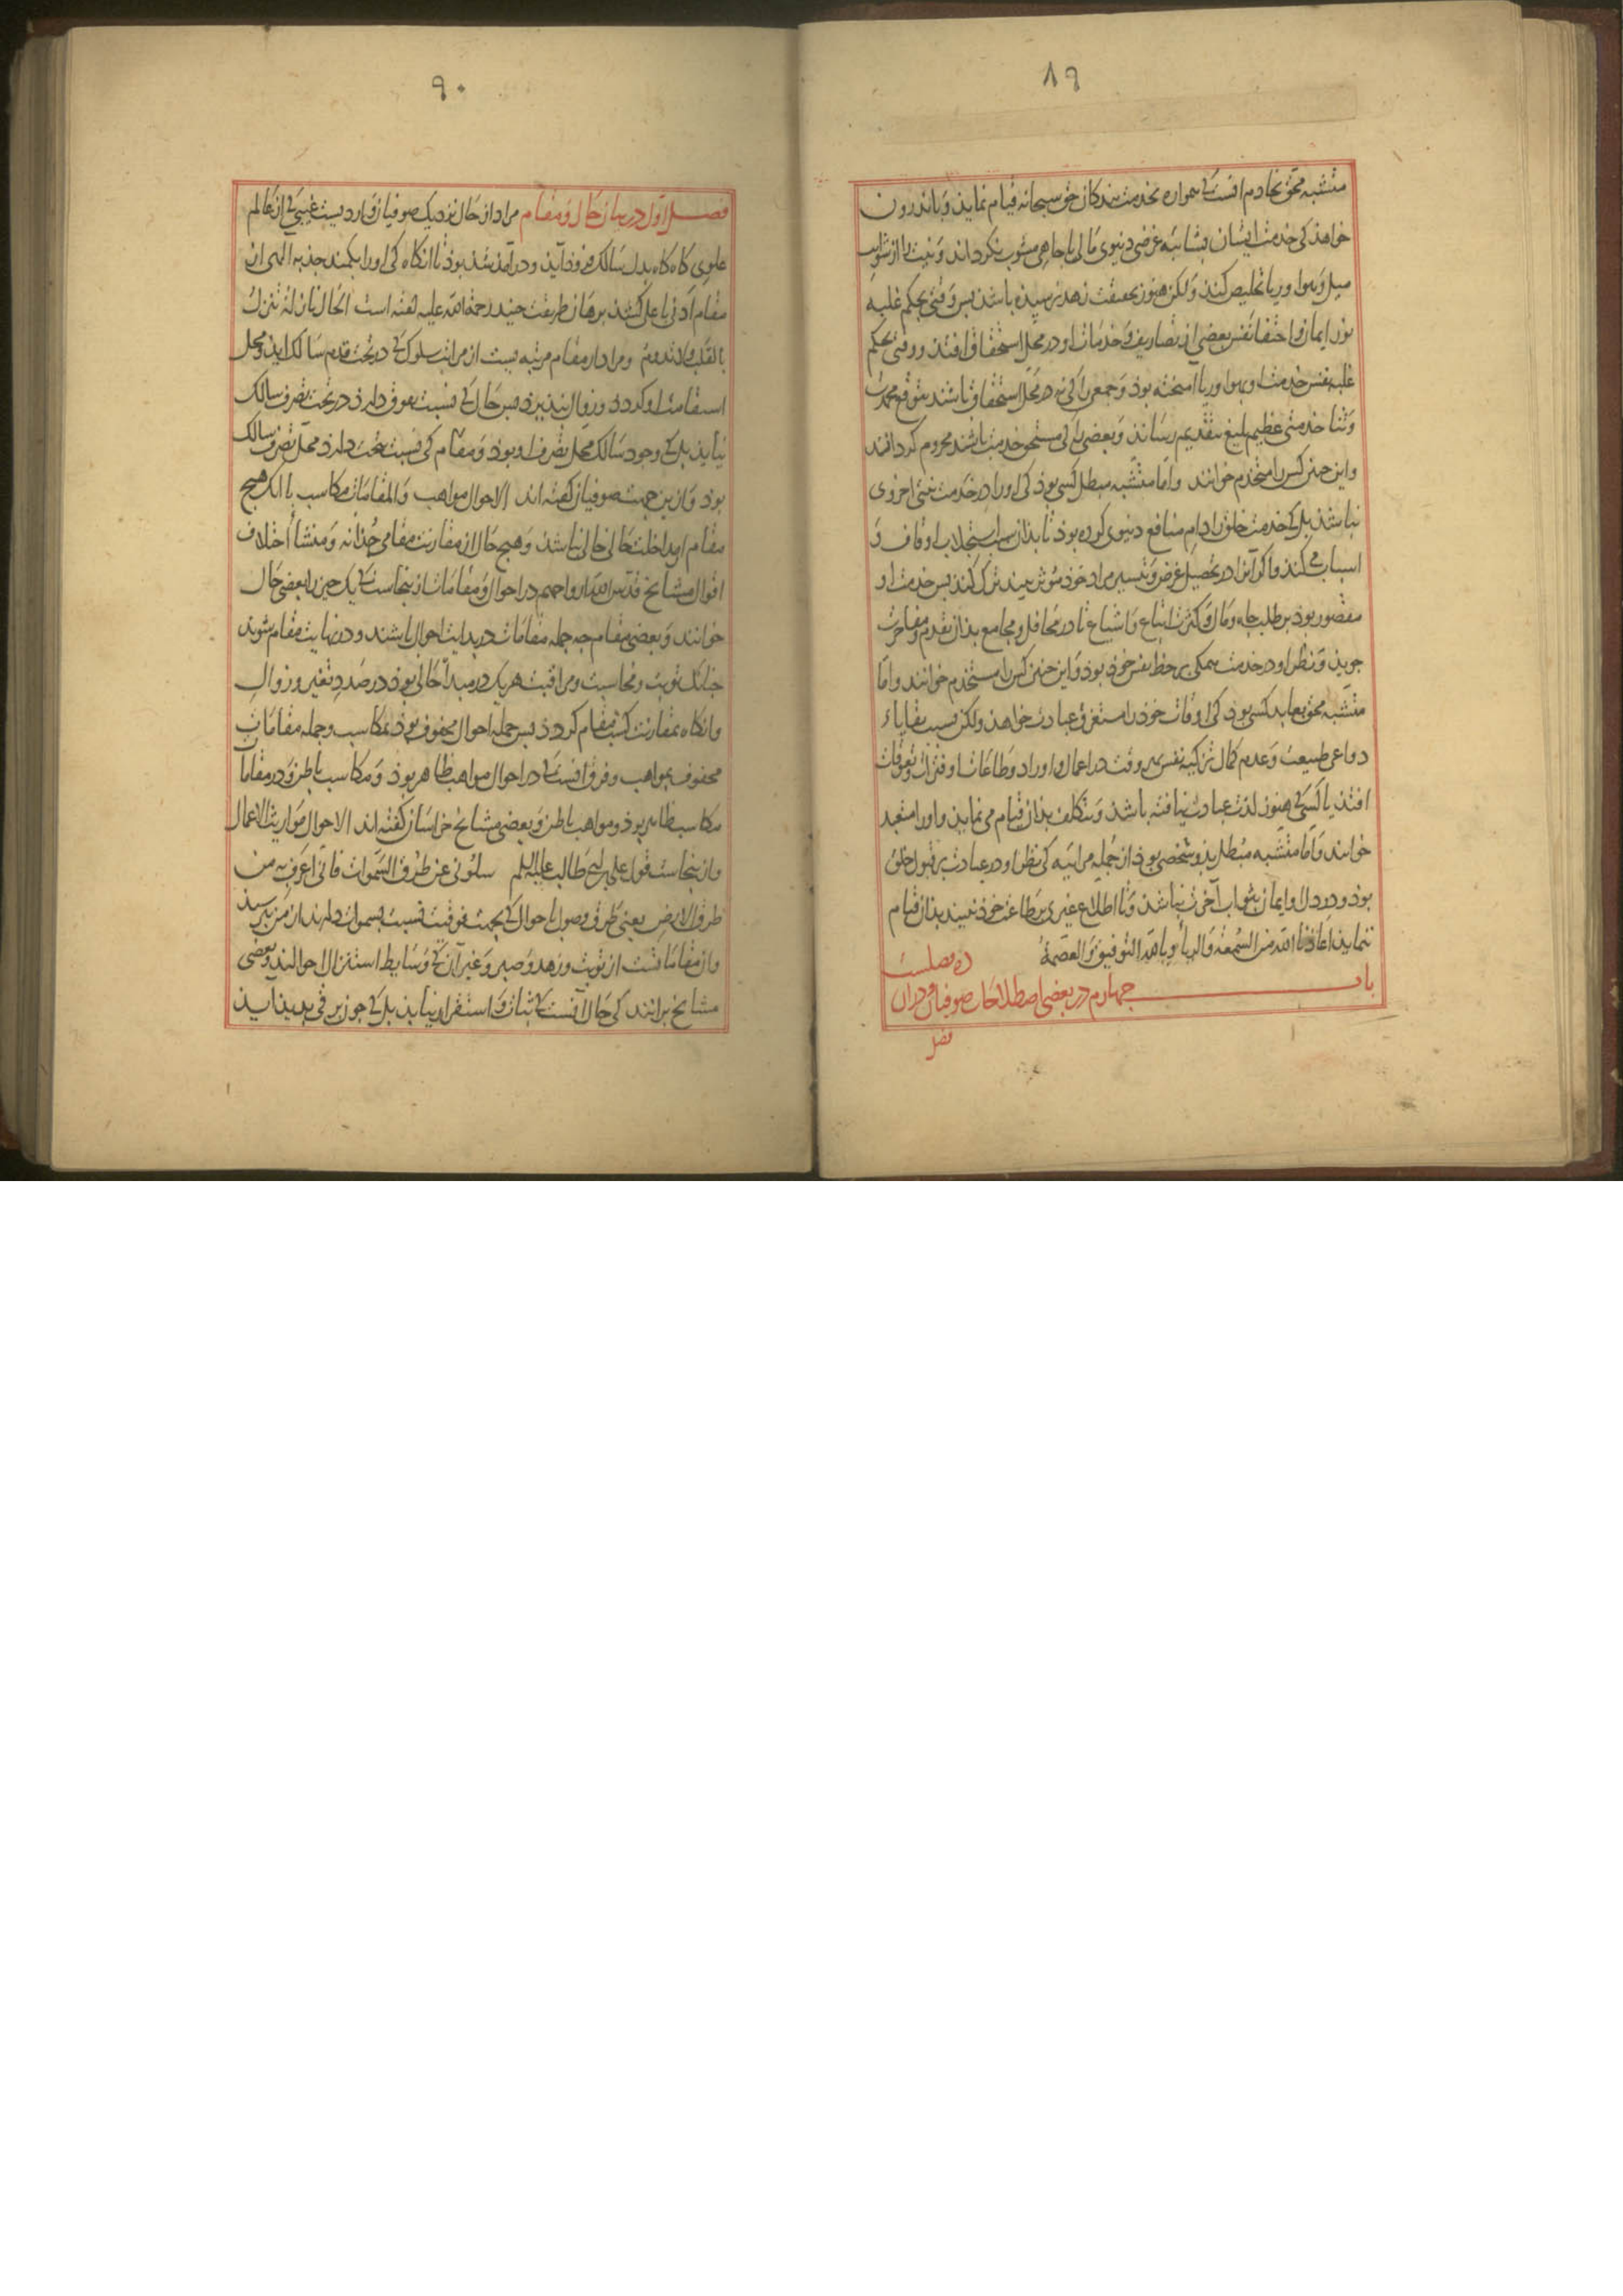 ۸۹
متشبه محق بخادم انست کی همواره بخدمت بندکان حق سبحانه قیام نماید و باندرون
خواهذ کی خدمت ایشان بشایبه غرضی دنیوی مالی یا جاهی مشوب نکرداند و نیت را از شوایب
میل و هوا و ریا تخلیص کند ولکن هنوز بحقیقت زهد نرسیده باشد بس وقتی بحکم غلبه
نور ایمان و اختفا نفس بعضی از تصاریف و خدمات او در محل استحقاق افتد و وقتی بحکم
غلبه نفس خدمت او بهوا و ریا آمیخته بوذ و جمعی را کی نه در محل استحقاق باشند بتوقع محمدت
و ثنا خدمتی عظیم بلیغ بتقدیم رساند و بعضی را کی مستحق خدمت باشند محروم کرداند
و این جنین کس را متخدم خوانند و اما متشبه مبطل کسی بوذ کی او را در خدمت نیتی اخروی
نباشد بل کی خدمت خلق را دام منافع دنیوی کرده بوذ تا بذان سبب استجلاب اوقاف و
اسباب می کند و اکر آنرا در تحصیل غرض و تیسیر مراد خوذ موثر نبیند ترک کند بس خدمت او
مقصور بوذ بر طلب جاه و مال و کثرت اتباع و اشیاع تا در محافل و مجامع بذان تقدم و مفاخرت
جوید و نظر او در خدمت همکی بر حظ نفس خوذ بوذ و این جنین کس را مستخدم خوانند و اما
متشبه محق بعابد کسی بوذ کی اوقات خوذ را مستغرق عبادت خواهذ ولکن بسبب بقایاء
دواعی طبیعت و عدم کمال تزکیه نفس هر وقت در اعمال و اوراد و طاعات او فترات و تعوقات
افتد یا کسی کی هنوز لذت عبادت نیافته باشد و بتکلف بذان قیام می نماید و او را متعبد
خوانند و اما متشبه مبطل بذو شخصی بوذ از جمله مراییه کی نظر او در عبادت بر قبول خلق
بوذ و در دل او ایمان بثواب آخرت نباشد و تا اطلاع غیری بر طاعت خوذ نبیند بذان قیام
ننماید اعاذنا الله من السمعة و الریاء و بالله التوفیق و العصمة
ده فصلست
باب جهارم در بعضی اصطلاحات صوفیان و دران
فصل
۹۰
فصل اول در بیان حال و مقام مراد از حال نزدیک صوفیان واردیست غیبی کی از عالم
علوی کاه کاه بدل سالک فروذ آید و در آمد شد بوذ تا انکاه کی او را بکمند جذبه الهی از
مقام ادنی باعلی کشد برهان طریقت جنید رحمة الله علیه کفته است الحال نازلة تنزل
بالقلب ولا تدوم و مراد از مقام مرتبه یست از مراتب سلوک کی در تحت قدم سالک آید و محل
استقامت او کردد و زوال نبذیرد بس حال کی نسبت بفوق دارذ در تحت تصرف سالک
نیاید بل کی وجود سالک محل تصرف او بوذ و مقام کی نسبت بتحت دارد محل تصرف سالک
بوذ و ازین جهت صوفیان کفته اند الاحوال مواهب و المقامات مکاسب با انک هیج
مقام از مداخلت حالی خالی نباشد و هیج حال از مقارنت مقامی جدا نه و منشأ اختلاف
اقوال مشایخ قدس الله ارواحهم در احوال و مقامات ازینجاست کی یک جیز را بعضی حال
خوانند و بعضی مقام جه جمله مقامات در بدایت احوال باشند و در نهایت مقام شوند
جنانک توبت و محاسبت و مراقبت هر یک در مبدا حالی بوذ در صدد تغیر و زوال
و انکاه بمقارنت کسب مقام کردد بس جمله احوال محفوف بوذ بمکاسب و جمله مقامات
محفوف بمواهب و فرق انست کی در احوال مواهب ظاهر بوذ و مکاسب باطن و در مقامات
مکاسب ظاهر بوذ و مواهب باطن و بعضی مشایخ خراسان کفته اند الاحوال مواریث الاعمال
و ازینجاست قول علی بن ابی طالب علیه السلم سلونی عن طرق السموات فانی اعرف به من
طرق الارض یعنی طرق وصول باحوال کی بجهت فوقیت نسبت بسموات دارند از من برسید
و ان مقاماتست از توبت و زهد و صبر و غیر آن کی وسایط استنزال احوالند و بعضی
مشایخ برانند کی حال آنست کی ثبات و استقرار نیابد بل کی جون برقی بدید آید